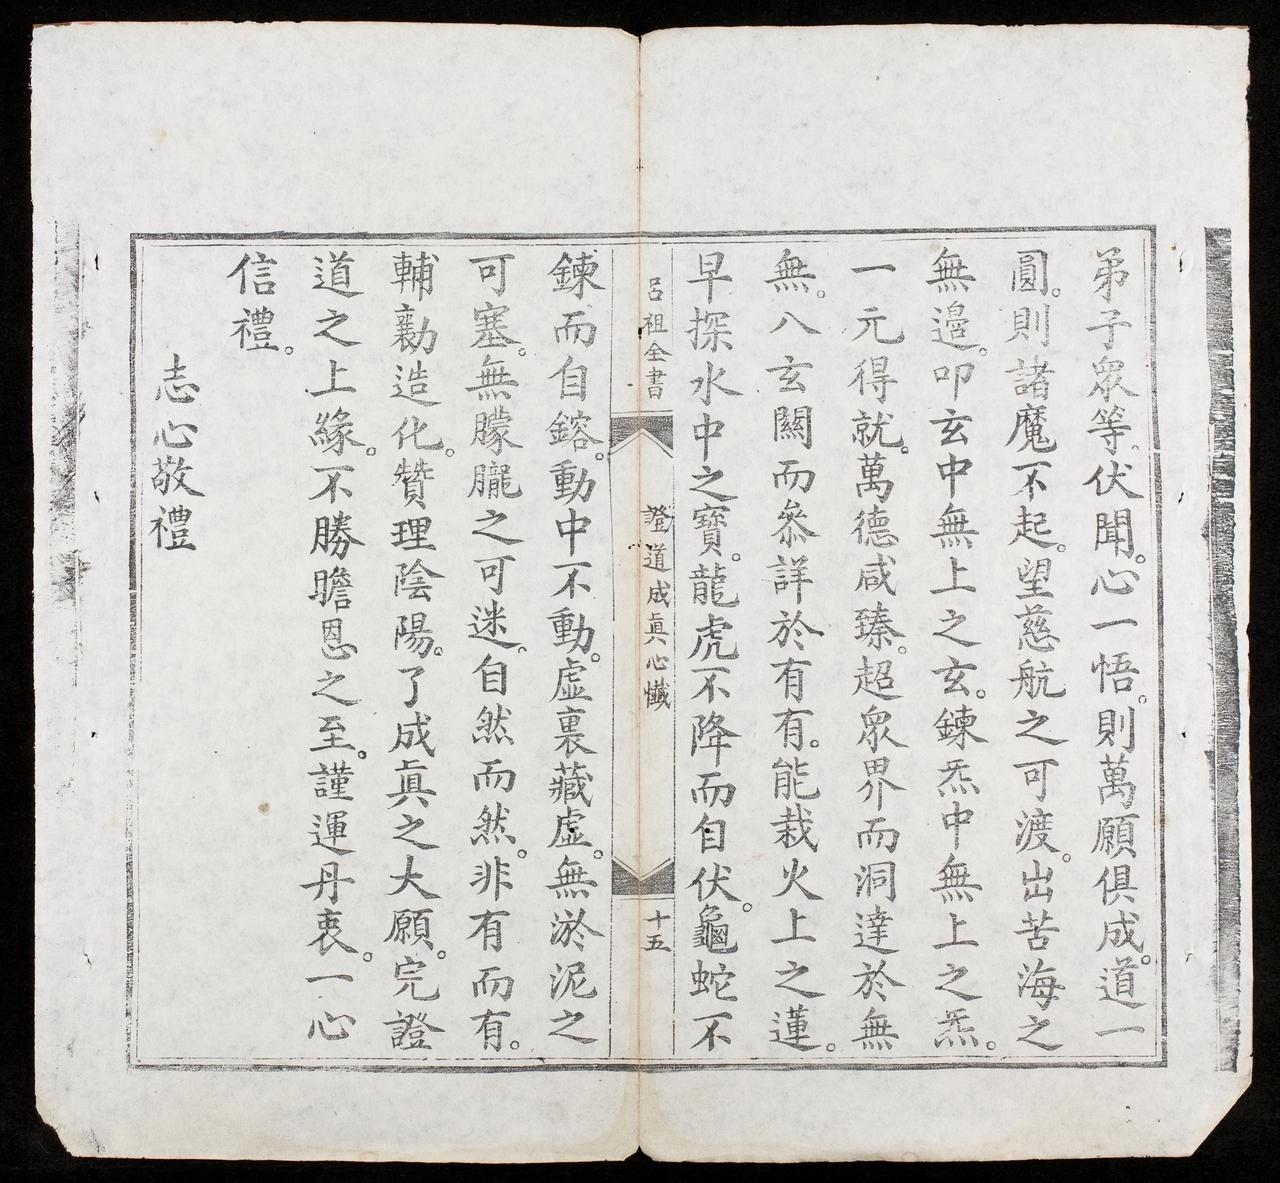 弟子眾等。伏聞。心一悟。則萬願俱成。道一
圓。則諸魔不起。望慈航之可渡。出苦海之
無邉。叩玄中無上之玄。鍊炁中無上之炁。
一元得就。萬德咸臻。超眾界而洞達於無
無。八玄關而叅詳於有有。能栽火上之蓮。
早探水中之寶。龍虎不降而自伏。龜蛇不
呂祖全書
證道成眞心懺
十五
鍊而自鎔。動中不動。虛裏藏虛。無淤泥之
可塞。無朦朧之可迷。自然而然。非有而有。
輔勷造化。贊理陰陽。了成眞之大願。完證
道之上緣。不勝瞻恩之至。謹運丹衷。一心
信禮。
志心敬禮